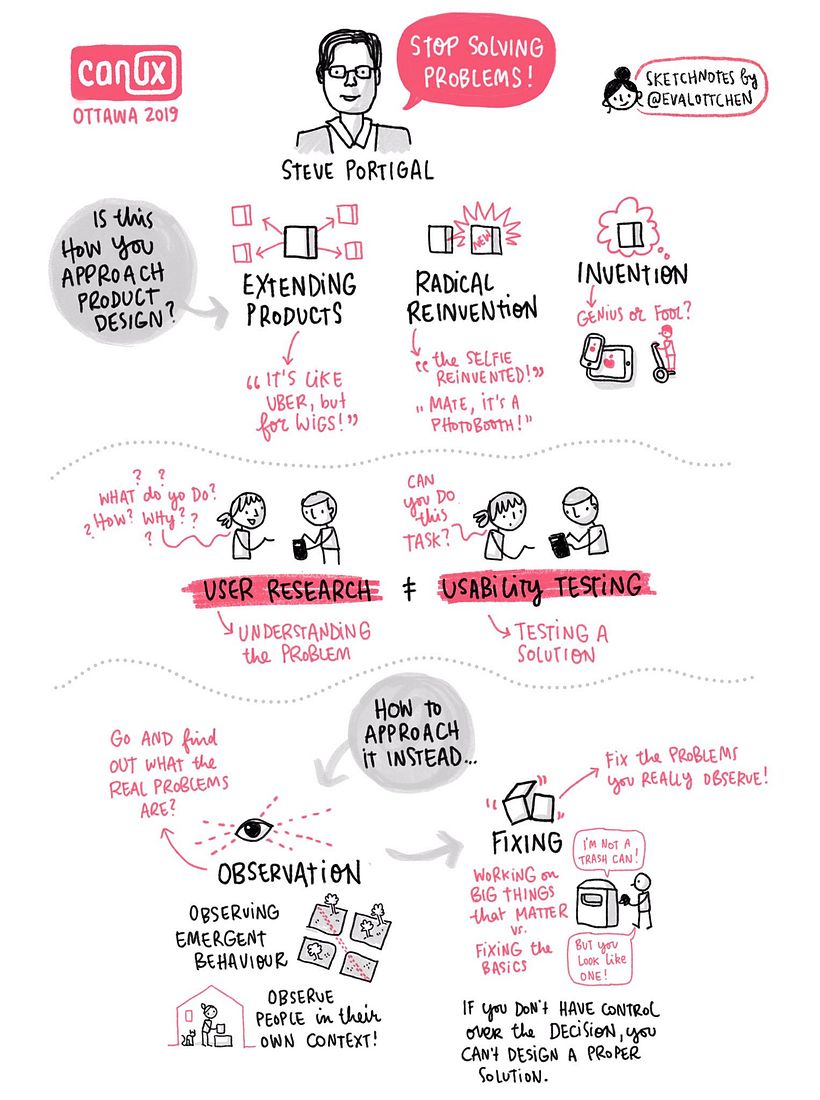 canux
OTTAWA 2019
STOP SOLVING
PROBLEMS!
SKETCHNOTES by
@EVALOTTCHEN
STEVE PORTIGAL
IS this
HOW YOU
APPROACH
PRODUCT
DESIGN?
EXTENDING
PRODUCTS
"IT'S LIKE
UBER, but
for WIGS!"
NEW
RADICAL
REINVENTION
"the SELFIE
REINVENTED!"
"MATE, IT'S A
PHOTOBOOTH!"
INVENTION
GENIUS or FOOL?
? ?
WHAT do yo DO?
? HOW? WHY? ?
?
CAN
you DO
this
TASK?
USER RESEARCH ≠ USABILITY TESTING
UNDERSTANDING
the PROBLEM
TESTING A
SOLUTION
HOW to
APPROACH
IT INSTEAD...
GO AND find
OUT WHAT the
REAL PROBLEMS
ARE?
OBSERVATION
OBSERVING
EMERGENT
BEHAVIOUR
OBSERVE
PEOPLE in their
OWN CONTEXT!
Fix the PROBLEMS
you REALLY OBSERVE!
FIXING
WORKING on
BIG THINGS
that MATTER
vs.
FIXING the
BASICS
I'M NOT A
TRASH CAN!
BUT you
LOOK LIKE
ONE!
IF you DON'T HAVE CONTROL
OVER the DECISION, you
CAN'T DESIGN A PROPER
SOLUTION.